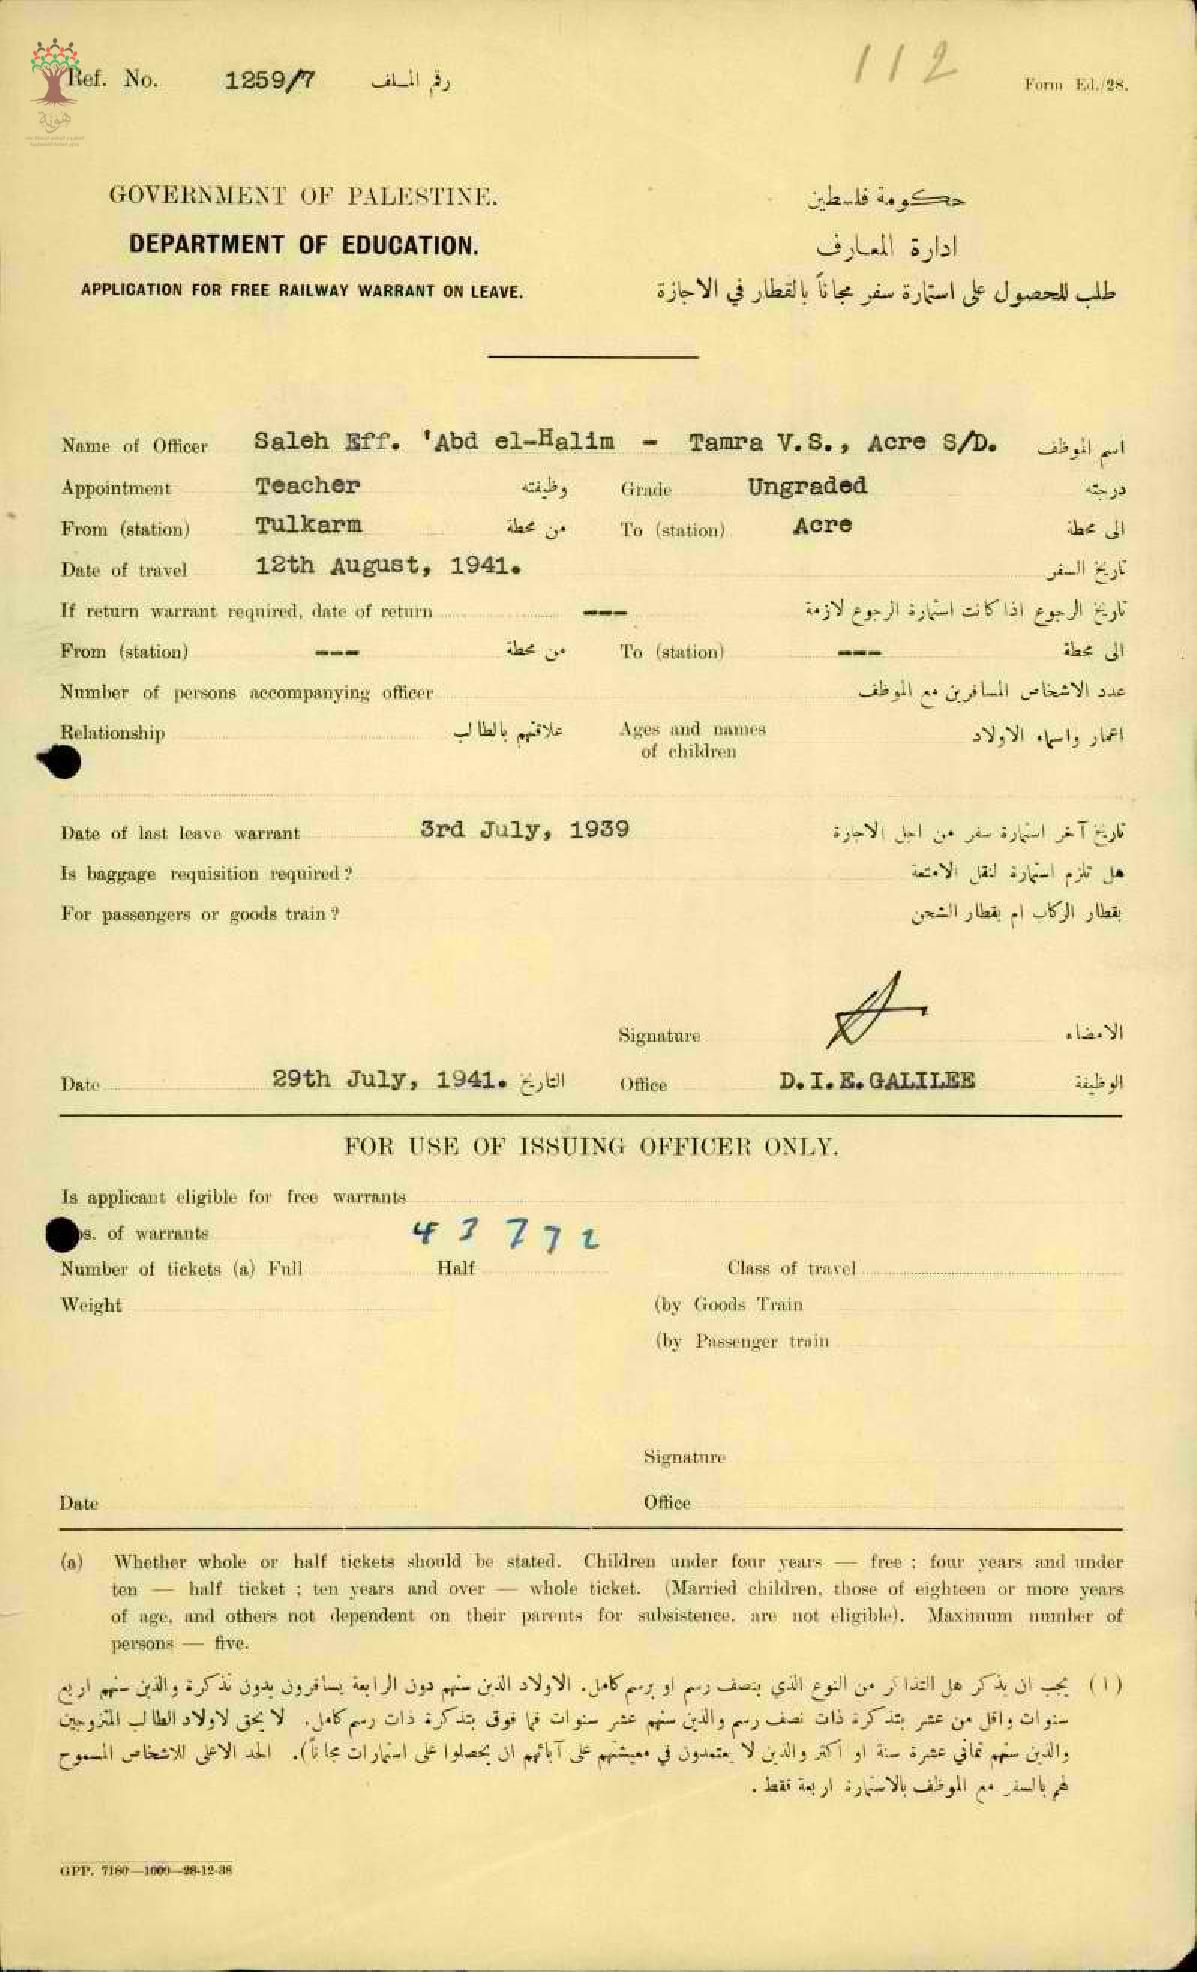 112
Ref. No. 1259/7 رقم الملف
Form Ed./28.
هوية
GOVERNMENT OF PALESTINE. حكومة فلسطين
DEPARTMENT OF EDUCATION. ادارة المعارف
APPLICATION FOR FREE RAILWAY WARRANT ON LEAVE. طلب للحصول على استمارة سفر مجاناً بالقطار في الاجازة
Name of Officer Saleh Eff. 'Abd el-Halim - Tamra V.S., Acre S/D. اسم الموظف
Appointment Teacher وظيفته Grade Ungraded درجته
From (station) Tulkarm من محطة To (station) Acre الى محطة
Date of travel 12th August, 1941. تاريخ السفر
If return warrant required, date of return --- تاريخ الرجوع اذا كانت استمارة الرجوع لازمة
From (station) --- من محطة To (station) --- الى محطة
Number of persons accompanying officer عدد الاشخاص المسافرين مع الموظف
Relationship علاقتهم بالطالب Ages and names of children اعمار واسماء الاولاد
Date of last leave warrant 3rd July, 1939 تاريخ آخر استمارة سفر من اجل الاجازة
Is baggage requisition required? هل تلزم استمارة لنقل الامتعة
For passengers or goods train? بقطار الركاب ام بقطار الشحن
Signature الامضاء
Date 29th July, 1941. التاريخ Office D.I.E.GALILEE الوظيفة
FOR USE OF ISSUING OFFICER ONLY.
Is applicant eligible for free warrants
os. of warrants 43772
Number of tickets (a) Full Half Class of travel
Weight (by Goods Train
(by Passenger train
Signature
Date Office
(a) Whether whole or half tickets should be stated. Children under four years — free ; four years and under
ten — half ticket ; ten years and over — whole ticket. (Married children, those of eighteen or more years
of age, and others not dependent on their parents for subsistence, are not eligible). Maximum number of
persons — five.
(ا) يجب ان يذكر هل التذاكر من النوع الذي بنصف رسم او برسم كامل. الاولاد الذين سنهم دون الرابعة يسافرون بدون تذكرة والذين سنهم اربع
سنوات واقل من عشر بتذكرة ذات نصف رسم والذين سنهم عشر سنوات فما فوق بتذكرة ذات رسم كامل. لا يحق لاولاد الطالب المتزوجين
والذين سنهم ثماني عشرة سنة او اكثر والذين لا يعتمدون في معيشتهم على آبائهم ان يحصلوا على استمارات مجاناً). الحد الاعلى للاشخاص المسموح
لهم بالسفر مع الموظف بالاستمارة اربعة فقط.
GPP. 7180—1000—28-12-38